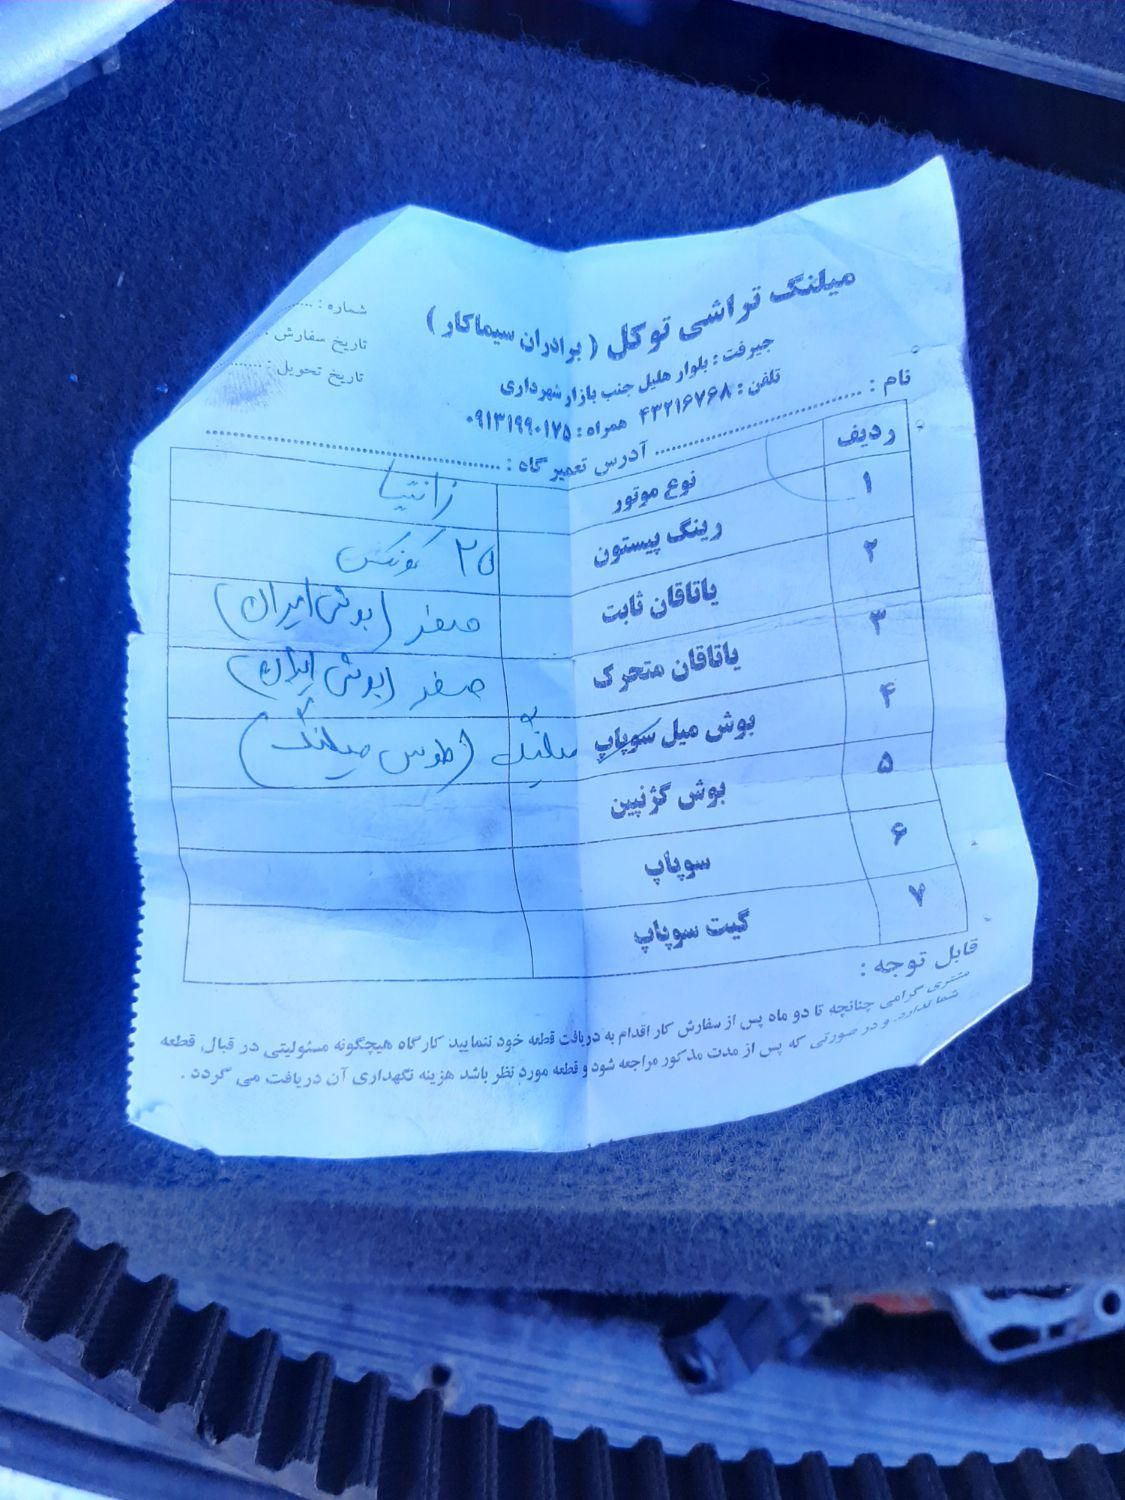 میلنگ تراشی توکل ( برادران سیماکار )
جیرفت : بلوار هلیل جنب بازار شهرداری
تلفن : ۴۳۲۱۶۷۶۸ همراه : ۰۹۱۳۱۹۹۰۱۷۵
شماره :
تاریخ سفارش :
تاریخ تحویل :
نام : آدرس تعمیر گاه :
ردیف
۱ نوع موتور زانتیا
۲ رینگ پیستون ۲۵
۳ یاتاقان ثابت صفر (بوش ایران)
۴ یاتاقان متحرک صفر (بوش ایران)
۵ بوش میل سوپاپ میلنگ (طوس میلنگ)
۶ بوش گژنپین
۷ سوپاپ
گیت سوپاپ
قابل توجه :
مشتری گرامی چنانچه تا دو ماه پس از سفارش کار اقدام به دریافت قطعه خود ننمایید کارگاه هیچگونه مسئولیتی در قبال قطعه
شما ندارد. و در صورتی که پس از مدت مذکور مراجعه شود و قطعه مورد نظر باشد هزینه نگهداری آن دریافت می گردد .